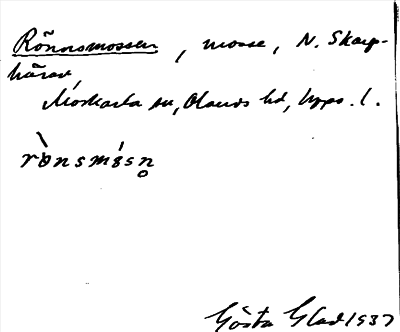 Rönnsmossen, mosse, N. Skarp-
håran,
Morkarla sn, Olands hd, Upps. l.
rò̤nsmósn̥
Gösta Glad 1937